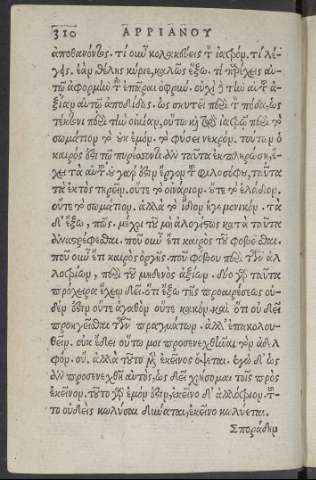 310 ΑΡΡΙΑΝΟΥ
ἀποθανόντος. τί οὖν κολακεύεις τὸν ἰατρόν. τί λέ-
γεις. ἐὰν θέλῃς κύριε, καλῶς ἕξω. τί παρέχεις αὐ-
τῷ ἀφορμὴν τοῦ ἐπᾶραι ὀφρῦν. οὐχὶ δὲ τὴν αὐτοῦ ἀ-
ξίαν αὐτῷ ἀποδίδως. ὡς σκυτεῖ περὶ τὸν πόδα, ὡς
τέκτονι περὶ τὴν οἰκίαν, οὕτω καὶ τῷ ἰατρῷ περὶ τὸ
σωμάτιον τὸ οὐκ ἐμόν. τὸ φύσει νεκρόν. τούτων ὁ
καιρός ἐστι τῷ πυρέσσοντι. ἂν ταῦτα ἐκπληρώσῃ, ἔ-
χει τὰ αὑτοῦ. οὐ γάρ ἐστιν ἔργον τοῦ φιλοσόφου, ταῦτα
τὰ ἐκτὸς τηρεῖν. οὔτε τὸ οἰνάριον. οὔτε τὸ ἐλάδιον.
οὔτε τὸ σωμάτιον. ἀλλὰ τὸ ἴδιον ἡγεμονικόν. τὰ
δ' ἔξω, πῶς. μέχρι τοῦ μὴ ἀλογίστως κατὰ ταῦτα
ἀναστρέφεσθαι. ποῦ οὖν ἔτι καιρὸς τοῦ φοβεῖσθαι.
ποῦ οὖν ἔτι καιρὸς ὀργῆς. ποῦ φόβου περὶ τῶν ἀλ-
λοτρίων, περὶ τῶν μηδενὸς ἀξίων. δύο γὰρ ταῦτα
πρόχειρα ἔχειν δεῖ. ὅτι ἔξω τῆς προαιρέσεως οὐ-
δέν ἐστιν οὔτε ἀγαθὸν οὔτε κακόν. καὶ ὅτι οὐ δεῖ
προηγεῖσθαι τῶν πραγμάτων. ἀλλ' ἐπακολου-
θεῖν. οὐκ ἔδει οὕτω μοι προσενεχθῆναι τὸν ἀδελ-
φόν. οὔ. ἀλλὰ τοῦτο μὲν ἐκεῖνος ὄψεται. ἐγὼ δ' ὡς
ἂν προσενεχθῇ αὐτός, ὡς δεῖ χρήσομαι τοῖς πρὸς
ἐκεῖνον. τοῦτο γὰρ ἐμόν ἐστιν, ἐκεῖνο δ' ἀλλότριον. τοῦ-
το οὐδεὶς κωλῦσαι δύναται, ἐκεῖνο κωλύεται.
Σποράδην